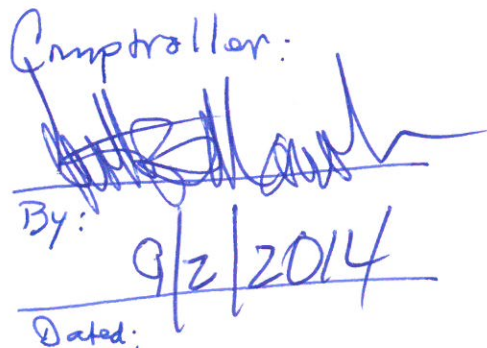 Comptroller:
By:
9/2/2014
Dated: